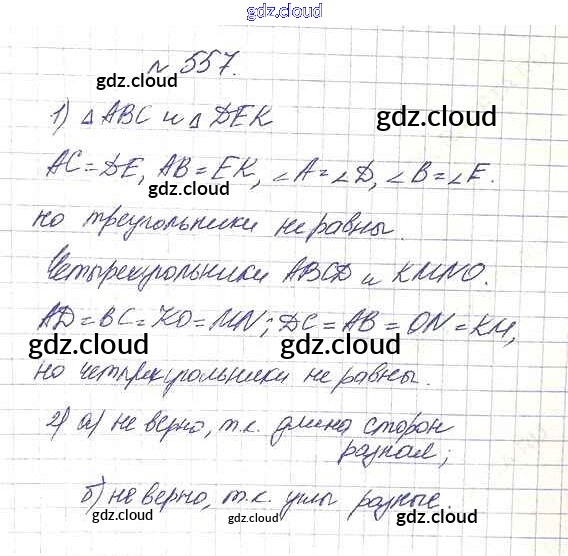 gdz.cloud
№ 557.
gdz.cloud
1) △ ABC и △ DEK
gdz.cloud
AC = DE, AB = EK, ∠A = ∠D, ∠B = ∠E.
gdz.cloud gdz.cloud
но треугольники не равны.
Четырехугольники ABCD и KMNO.
AD = BC = KO = MN; DC = AB = ON = KM,
gdz.cloud gdz.cloud
но четырехугольники не равны.
2) а) не верно, т.к. длина сторон
gdz.cloud gdz.cloud
разная;
б) не верно, т.к. углы разные.
gdz.cloud gdz.cloud gdz.cloud